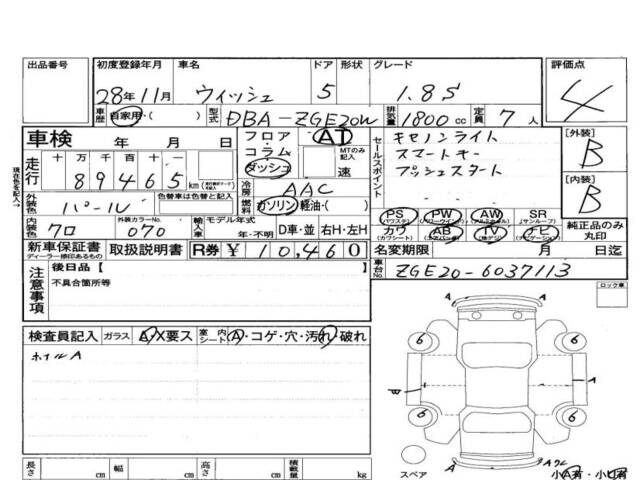 出品番号 初度登録年月 車名 ドア 形状 グレード 評価点
28年11月 ウィッシュ 5 1.8S 4
車歴 自家用・( ) 型式 DBA-ZGE20W 排気量 1800cc 定員 7人
車検 年 月 日 フロア・コラム・ダッシュ AT MTのみ記入 速
セールスポイント キセノンライト
スマートキー
プッシュスタート
[外装] B
[内装] B
走行 十万千百十一 89465km
冷房 AAC
外装色 パール 色替車は色替と記入 燃料 ガソリン・軽油・( )
PS PW AW SR
(パワステ) (パワーウインドウ) (アルミホイル) (サンルーフ)
カワ AB TV ナビ
(カワシート) (エアバッグ) (ナビゲーション)
純正品のみ丸印
内装色 クロ 外装カラーNo. 070 輸入車 モデル年式 年・不明 D車・並 右H・左H
新車保証書 取扱説明書 R券 ¥10,460
ディーラー捺印あるもの
名変期限 月 日迄
車台No. ZGE20-6037113
注意事項 後日品【 】
不具合箇所等
ロック車
検査員記入 ガラス A/X要ス 室内シート A・コゲ・穴・汚れ・破れ
ホイルA
6 6
B A
6 6
スペア
Aワレ
小A有・小U有
長さ cm 幅 cm 高さ cm 積載量 kg
現在色を記入→